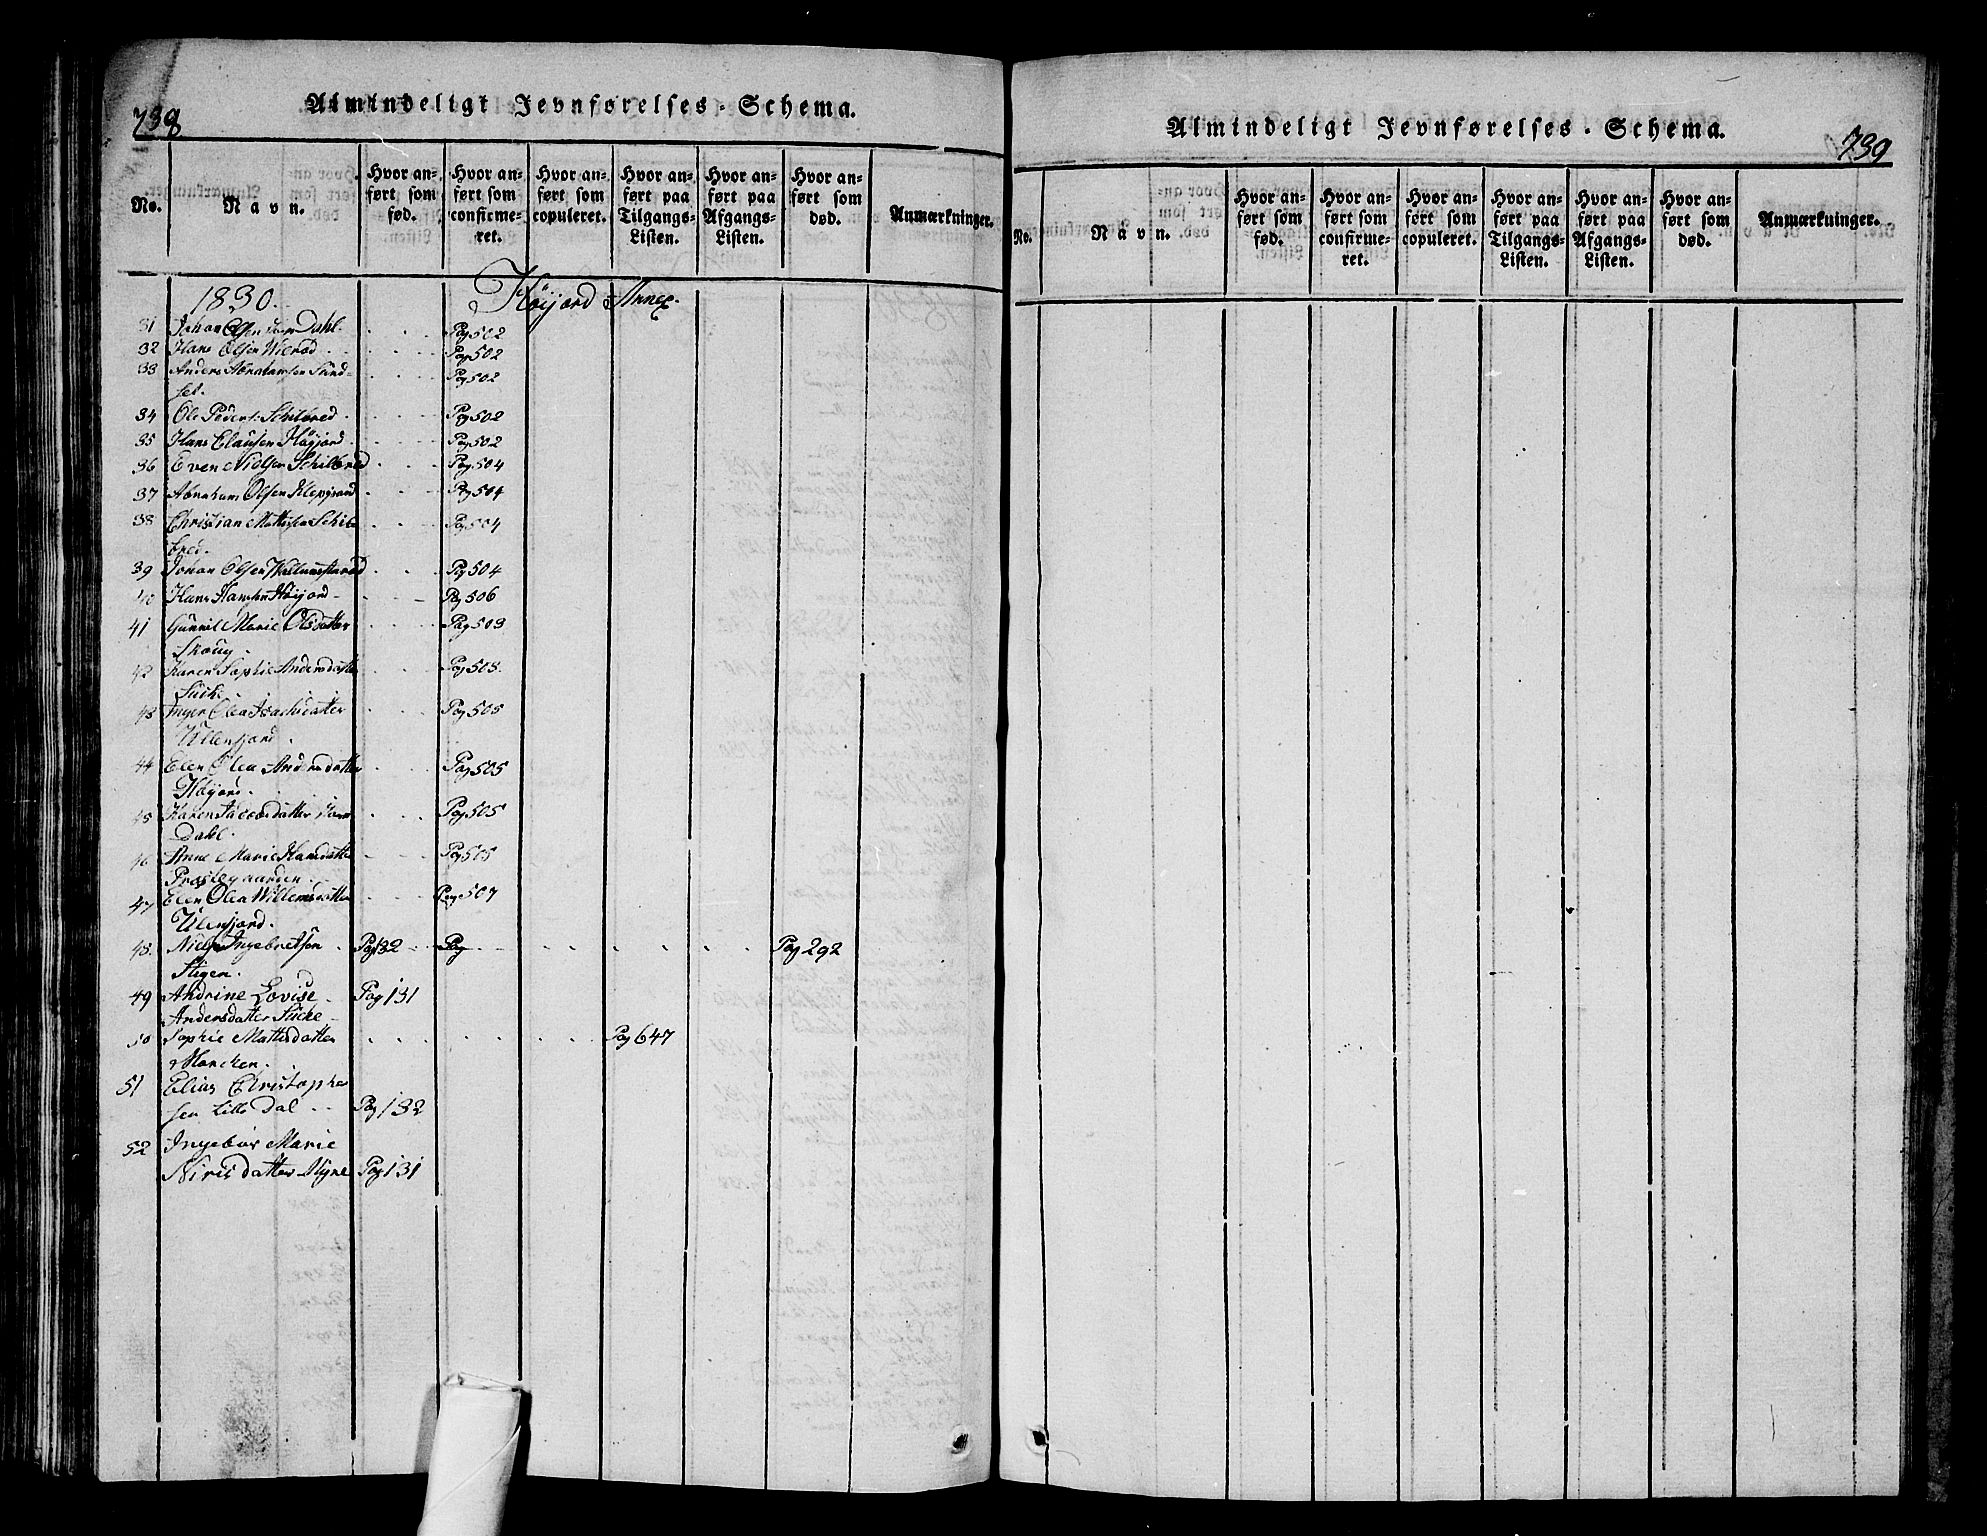 738
Almindeligt Jevnførelses-Schema.
No.
Navn.
Hvor anført som fød.
Hvor anført som confirmeret.
Hvor anført som copuleret.
Hvor anført paa Tilgangs-Listen.
Hvor anført paa Afgangs-Listen.
Hvor anført som død.
Anmærkninger.
1830. Höijord Annex.
31 Johan Olsen Dahl. Pag 502
32 Hans Olsen Wierød Pag 502
33 Anders Abrahamsen Sand- Pag 502
set.
34 Ole Peders. Schilbred Pag 502
35 Hans Clausen Höyjord Pag 502
36 Even Nielsen Schilbred Pag 504
37 Abraham Olsen Pag 504
38 Christian Mathisen Schil- Pag 504
bred.
39 Johan Olsen Pag 504
40 Hans Hansen Höijord Pag 506
41 Gunnil Marie Olsdatter Pag 503
Skoug.
42 Karen Sophie Andersdatter Pag 505.
Sücke.
43 Inger Olea Isachsdatter Pag 505
Ulensjord.
44 Elen Olea Andersdatter Pag 505
Höyjord.
45 Karen Jacobsdatter Pag 505
Dahl.
46 Anne Marie Hansdatter Pag 505
Præstegaarden.
47 Elen Olea Willemsdatter Pag 507
Ulensjord.
48. Niels Ingebretsen Pag 132 Pag Pag 292
Stigen.
49 Andrine Lovise Pag 131
Andersdatter Sücke
50 Sophie Mathisdatter Pag 647
Marcken.
51 Elias Christophe
sen Lille Dal Pag 132
52 Ingebor Marie
Nirisdatter Myre Pag 131
Almindeligt Jevnførelses-Schema.
739
No.
Navn.
Hvor anført som fød.
Hvor anført som confirmeret.
Hvor anført som copuleret.
Hvor anført paa Tilgangs-Listen.
Hvor anført paa Afgangs-Listen.
Hvor anført som død.
Anmærkninger.